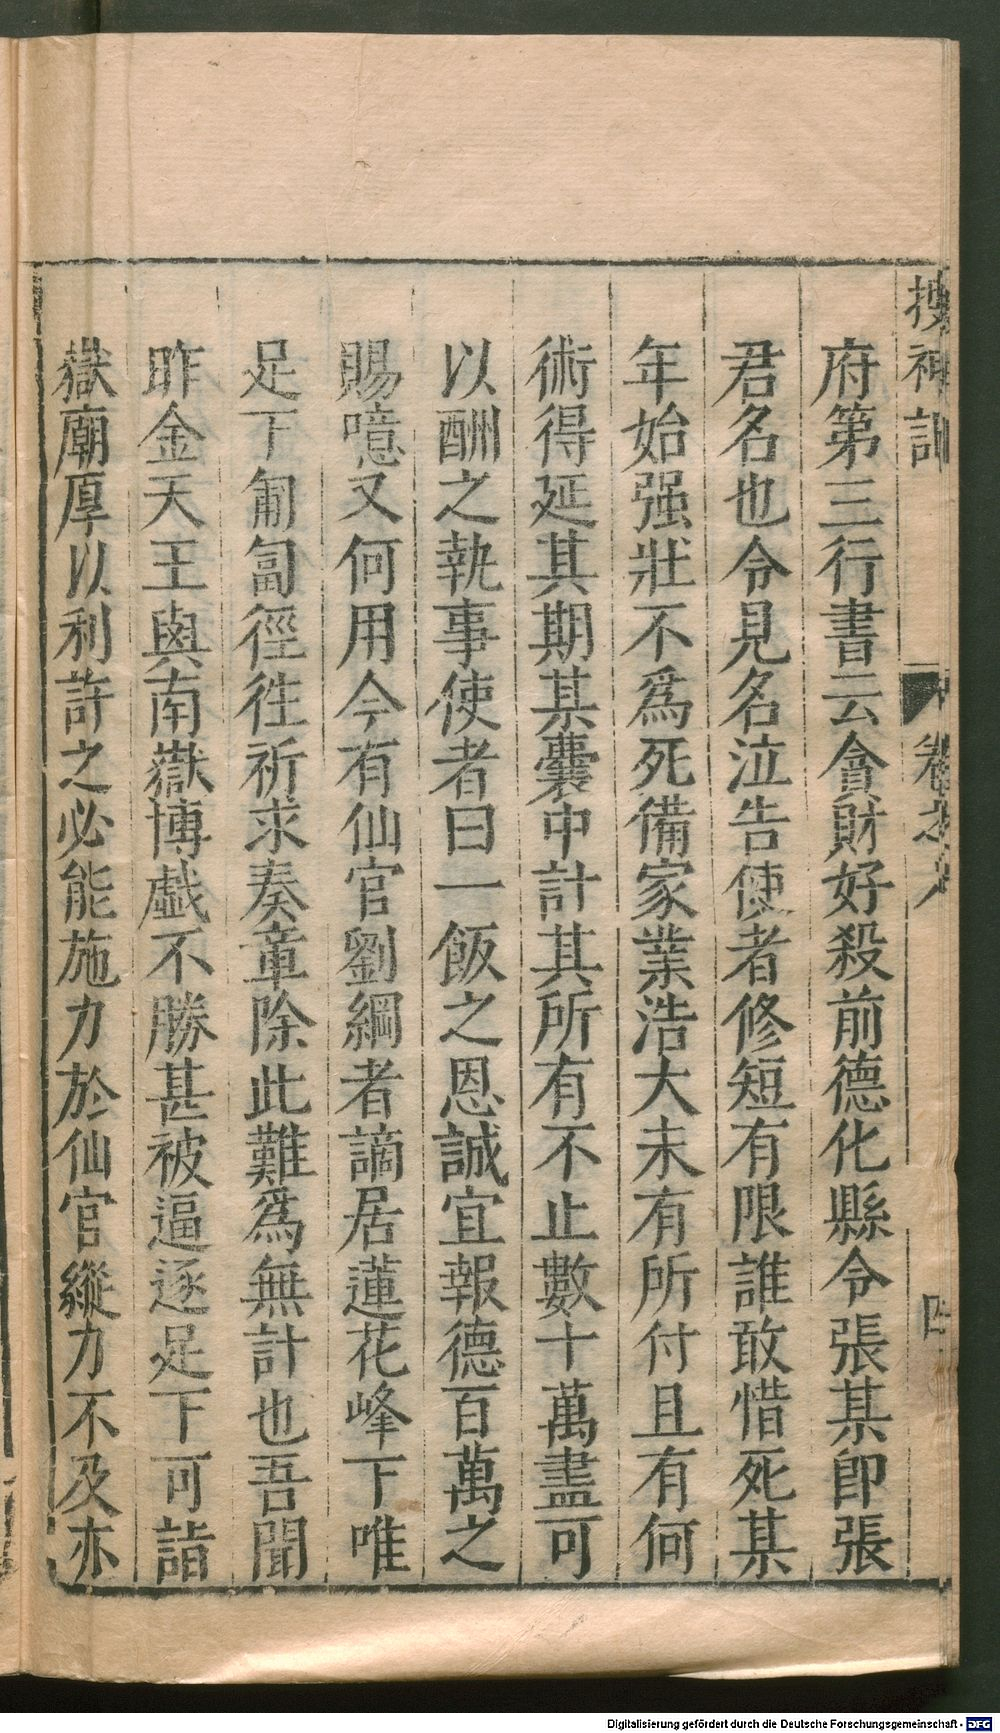 搜神記 卷之六 四
府第三行書云貪財好殺前德化縣令張某卽張
君名也令見名泣告使者修短有限誰敢惜死某
年始强壯不爲死備家業浩大未有所付且有何
術得延其期某囊中計其所有不止數十萬盡可
以酬之執事使者曰一飯之恩誠宜報德百萬之
賜噫又何用今有仙官劉綱者謫居蓮花峰下唯
足下匍匐徑徃祈求奏章除此難爲無計也吾聞
昨金天王與南嶽博戲不勝甚被逼逐足下可詣
嶽廟厚以利許之必能施力於仙官縱力不及亦
Digitalisierung gefördert durch die Deutsche Forschungsgemeinschaft - DFG